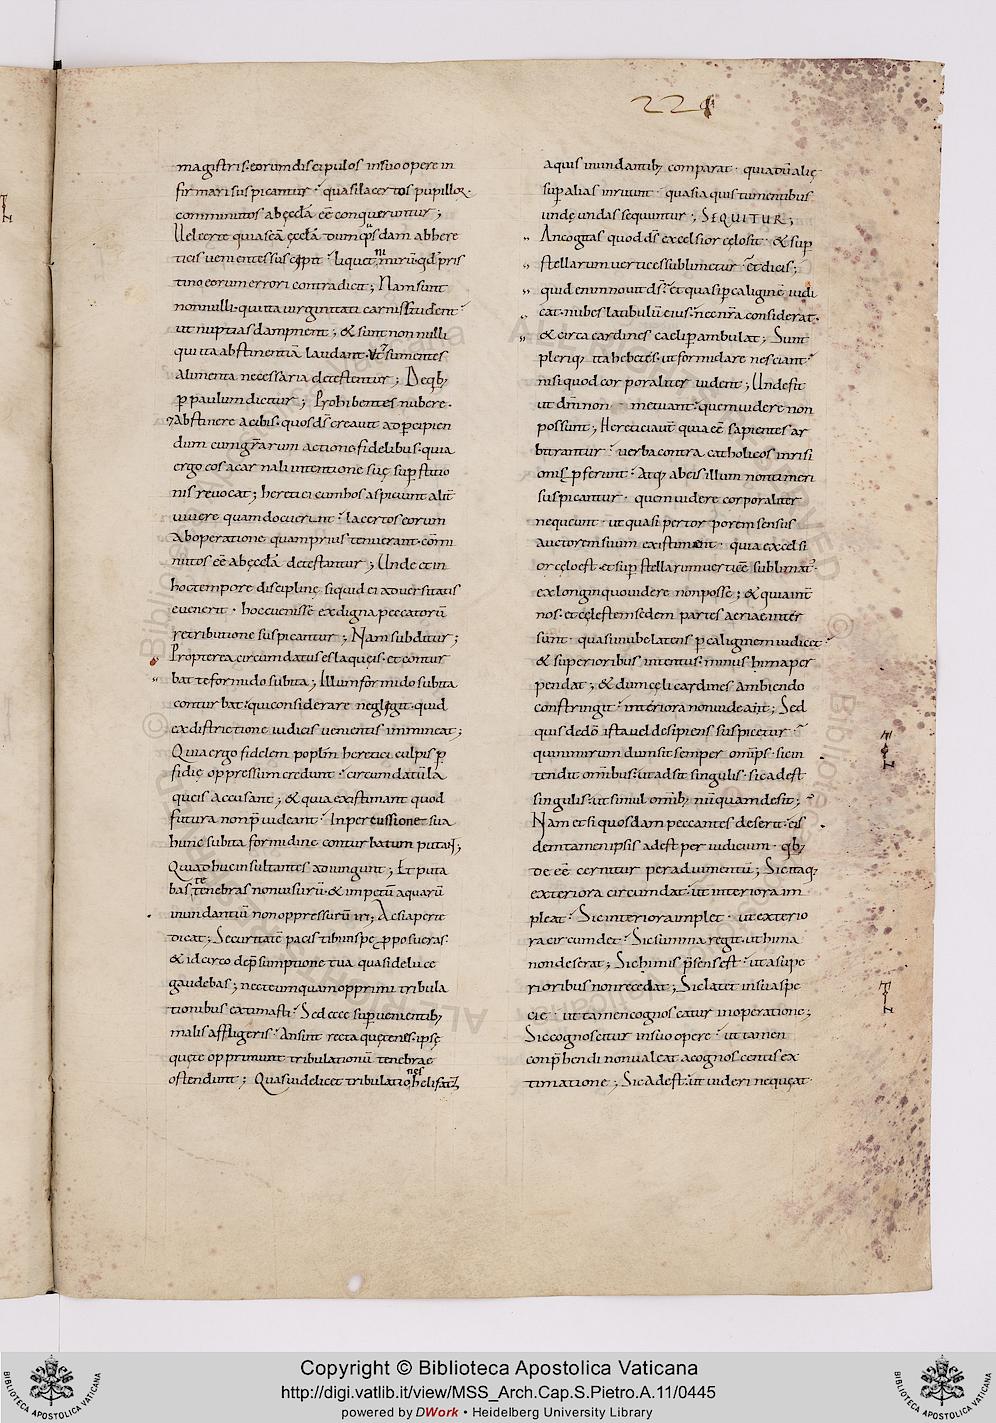 221
magistris· eorum discipulos insuo opere in
firmari suspicantur· quasi lacertos pupillor·
comminutos ab ęcclā eē conqueruntur;
Uel certe quia scā ęcclā dum qsdam abhere
ticis uenientes suscepit· liquet nimirū qd pris
tino eorum errori contradicit; Nam sunt
nonnulli· qui ita uirginitati carnis student·
ut nuptias dampnent; & sunt non nulli
qui ita abstinentiā laudant· ut sumentes
alimenta necessaria detestentur; De qb;
p paulum dicitur; Prohibentes nubere·
abstinere a cibis· quos ds creauit ad pcipien
dum cum grarum actione fidelibus· quia
ergo eos a carnali intentione suę supstitio
nis reuocat; heretici cum hos aspiciunt alit
uiuere quam docuerunt· lacertos eorum
ab operatione quam prius tenuerant· comi
nutos eē ab ęcclā detestantur; Unde et in
hoc tempore disciplinę siquid ei aduersitatis
euenerit· hoc euenisse ex digna peccatorū
retributione suspicantur; Nam subditur;
Propterea circumdatus es laqueis· et contur
bat te formido subita; Illum formido subita
conturbat· qui considerare neglegit· quid
ex districtione iudicis uenientis immineat;
Quia ergo fidelem poplm heretici culpis p
fidię oppressum credunt· circumdatū la
queis accusant; & quia existimant quod
futura non puideant· In percussione sua
hunc subita formidine conturbatum putant;
Qui adhuc insultantes adiungunt; Et puta
bas te tenebras non uisurū· & impetū aquarū
inundantiū non oppressurū iri; Ac si aperte
dicat; Securitatē pacis tibi in spe pposueras·
& idcirco de psumptione tua quasi de luce
gaudebas; nec te umquam opprimi tribula
tionibus extimasti· Sed ecce supuenientib;
malis affligeris· An sint recta que tenes· ipsę
quę te opprimunt tribulationū tenebrae
ostendunt; Quas uidelicet tribulationes bene satis
aquis inundantib; comparat· quia dū alię
sup alias inruunt· quasi aquis tumentibus
undę undas sequuntur; SEQUITUR;
An cogitas quod ds excelsior cęlo sit· & sup
stellarum uertices sublimetur· et dicis;
quid enim nouit ds· et quasi p caliginē iudi
cat· nubes latibulū eius· nec nra considerat·
& circa cardines caeli pambulat; Sunt
pleriq; ita hebetes· ut formidare nesciant·
nisi quod corporaliter uident; Unde fit
ut dm non metuant· quem uidere non
possunt; Heretici aut quia eē sapientes ar
bitrantur· uerba contra catholicos inrisi
onis pferunt· Atq; ab eis illum non timeri
suspicantur· quem uidere corporaliter
nequeunt· ut quasi per torporem sensus
auctorem suum existiment· quia excelsi
or cęlo est· et sup stellarum uerticē sublimat·
ex longinquo uidere non posse; & quia int
nos· et cęlestem sedem partes aeriae inter
sunt· quasi nube latens p caliginem iudicet·
& superioribus intentus· minus hima per
pendat; & dum cęli cardines ambiendo
constringit· interiora non uideant; Sed
quis de dō ista uel desipiens suspicetur·
qui nimirum dum sit semper omps· sic in
tendit omibus· ut adsit singulis· sic adest
singulis· ut simul omib; numquam desit;
Nam etsi quosdam peccantes deserit· eis
dem tamen ipsis adest per iudicium· qb;
deeē cernitur per adiumentū; Sic itaq;
exteriora circumdat· ut interiora im
pleat· Sic interiora implet· ut exterio
ra circumdet· Sic summa regit· ut hima
non deserat; Sic himis psens est· ut a supe
rioribus non recedat; Sic latet in sua spe
cie· ut tamen cognoscatur in operatione;
Sic cognoscitur in suo opere· ut tamen
conphendi non ualeat a cognoscentis ex
timatione; Sic adest· ut uideri nequeat·
Copyright © Biblioteca Apostolica Vaticana
http://digi.vatlib.it/view/MSS_Arch.Cap.S.Pietro.A.11/0445
powered by DWork • Heidelberg University Library